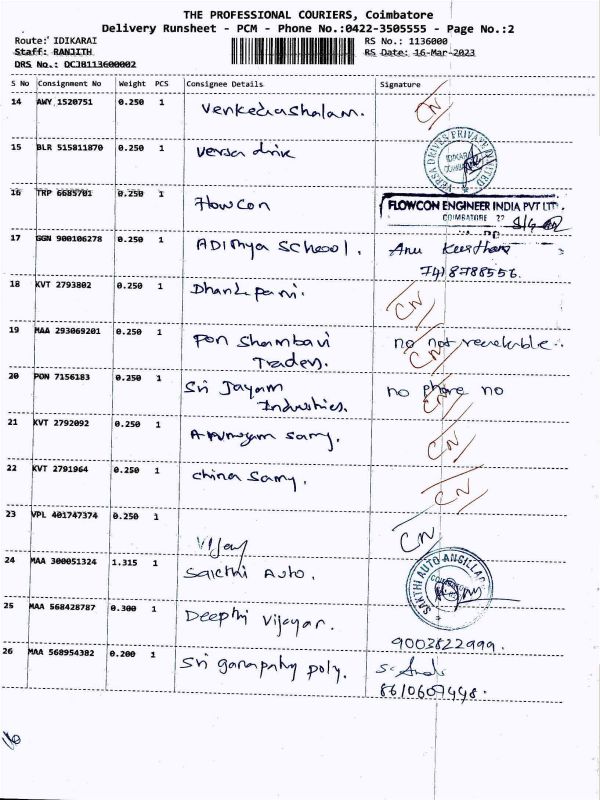 THE PROFESSIONAL COURIERS, Coimbatore
Delivery Runsheet - PCM - Phone No.:0422-3505555 - Page No.:2
Route: IDIKARAI RS No.: 1136000
Staff: RANJITH RS Date: 16-Mar-2023
DRS No.: DCJB113600002
S No Consignment No Weight PCS Consignee Details Signature
14 AWY 1520751 0.250 1 Venkedashalam. CN
15 BLR 515811870 0.250 1 Versa drive VERSA DRIVES PRIVATE LIMITED
16 TRP 6685701 0.250 1 Flowcon FLOWCON ENGINEER INDIA PVT LTD.
COIMBATORE
17 GGN 900106278 0.250 1 ADithya School. Anu
7418788556.
18 KVT 2793802 0.250 1 Dhandapani. CN
19 MAA 293069201 0.250 1 Pon Shambavi no not reachable.
Traders. CN
20 PON 7156183 0.250 1 Sri Jayam no phone no
Industries. CN
21 KVT 2792092 0.250 1 Arumugam Samy. CN
22 KVT 2791964 0.250 1 China Samy. CN
23 VPL 401747374 0.250 1 Vijay CN
24 MAA 300051324 1.315 1 Sakthi Auto. SAKTHI AUTO ANCILLAR
25 MAA 568428787 0.300 1 Deepthi Vijayar. 9003822999.
26 MAA 568954382 0.200 1 Sri ganapathy poly.
8610607448.
16